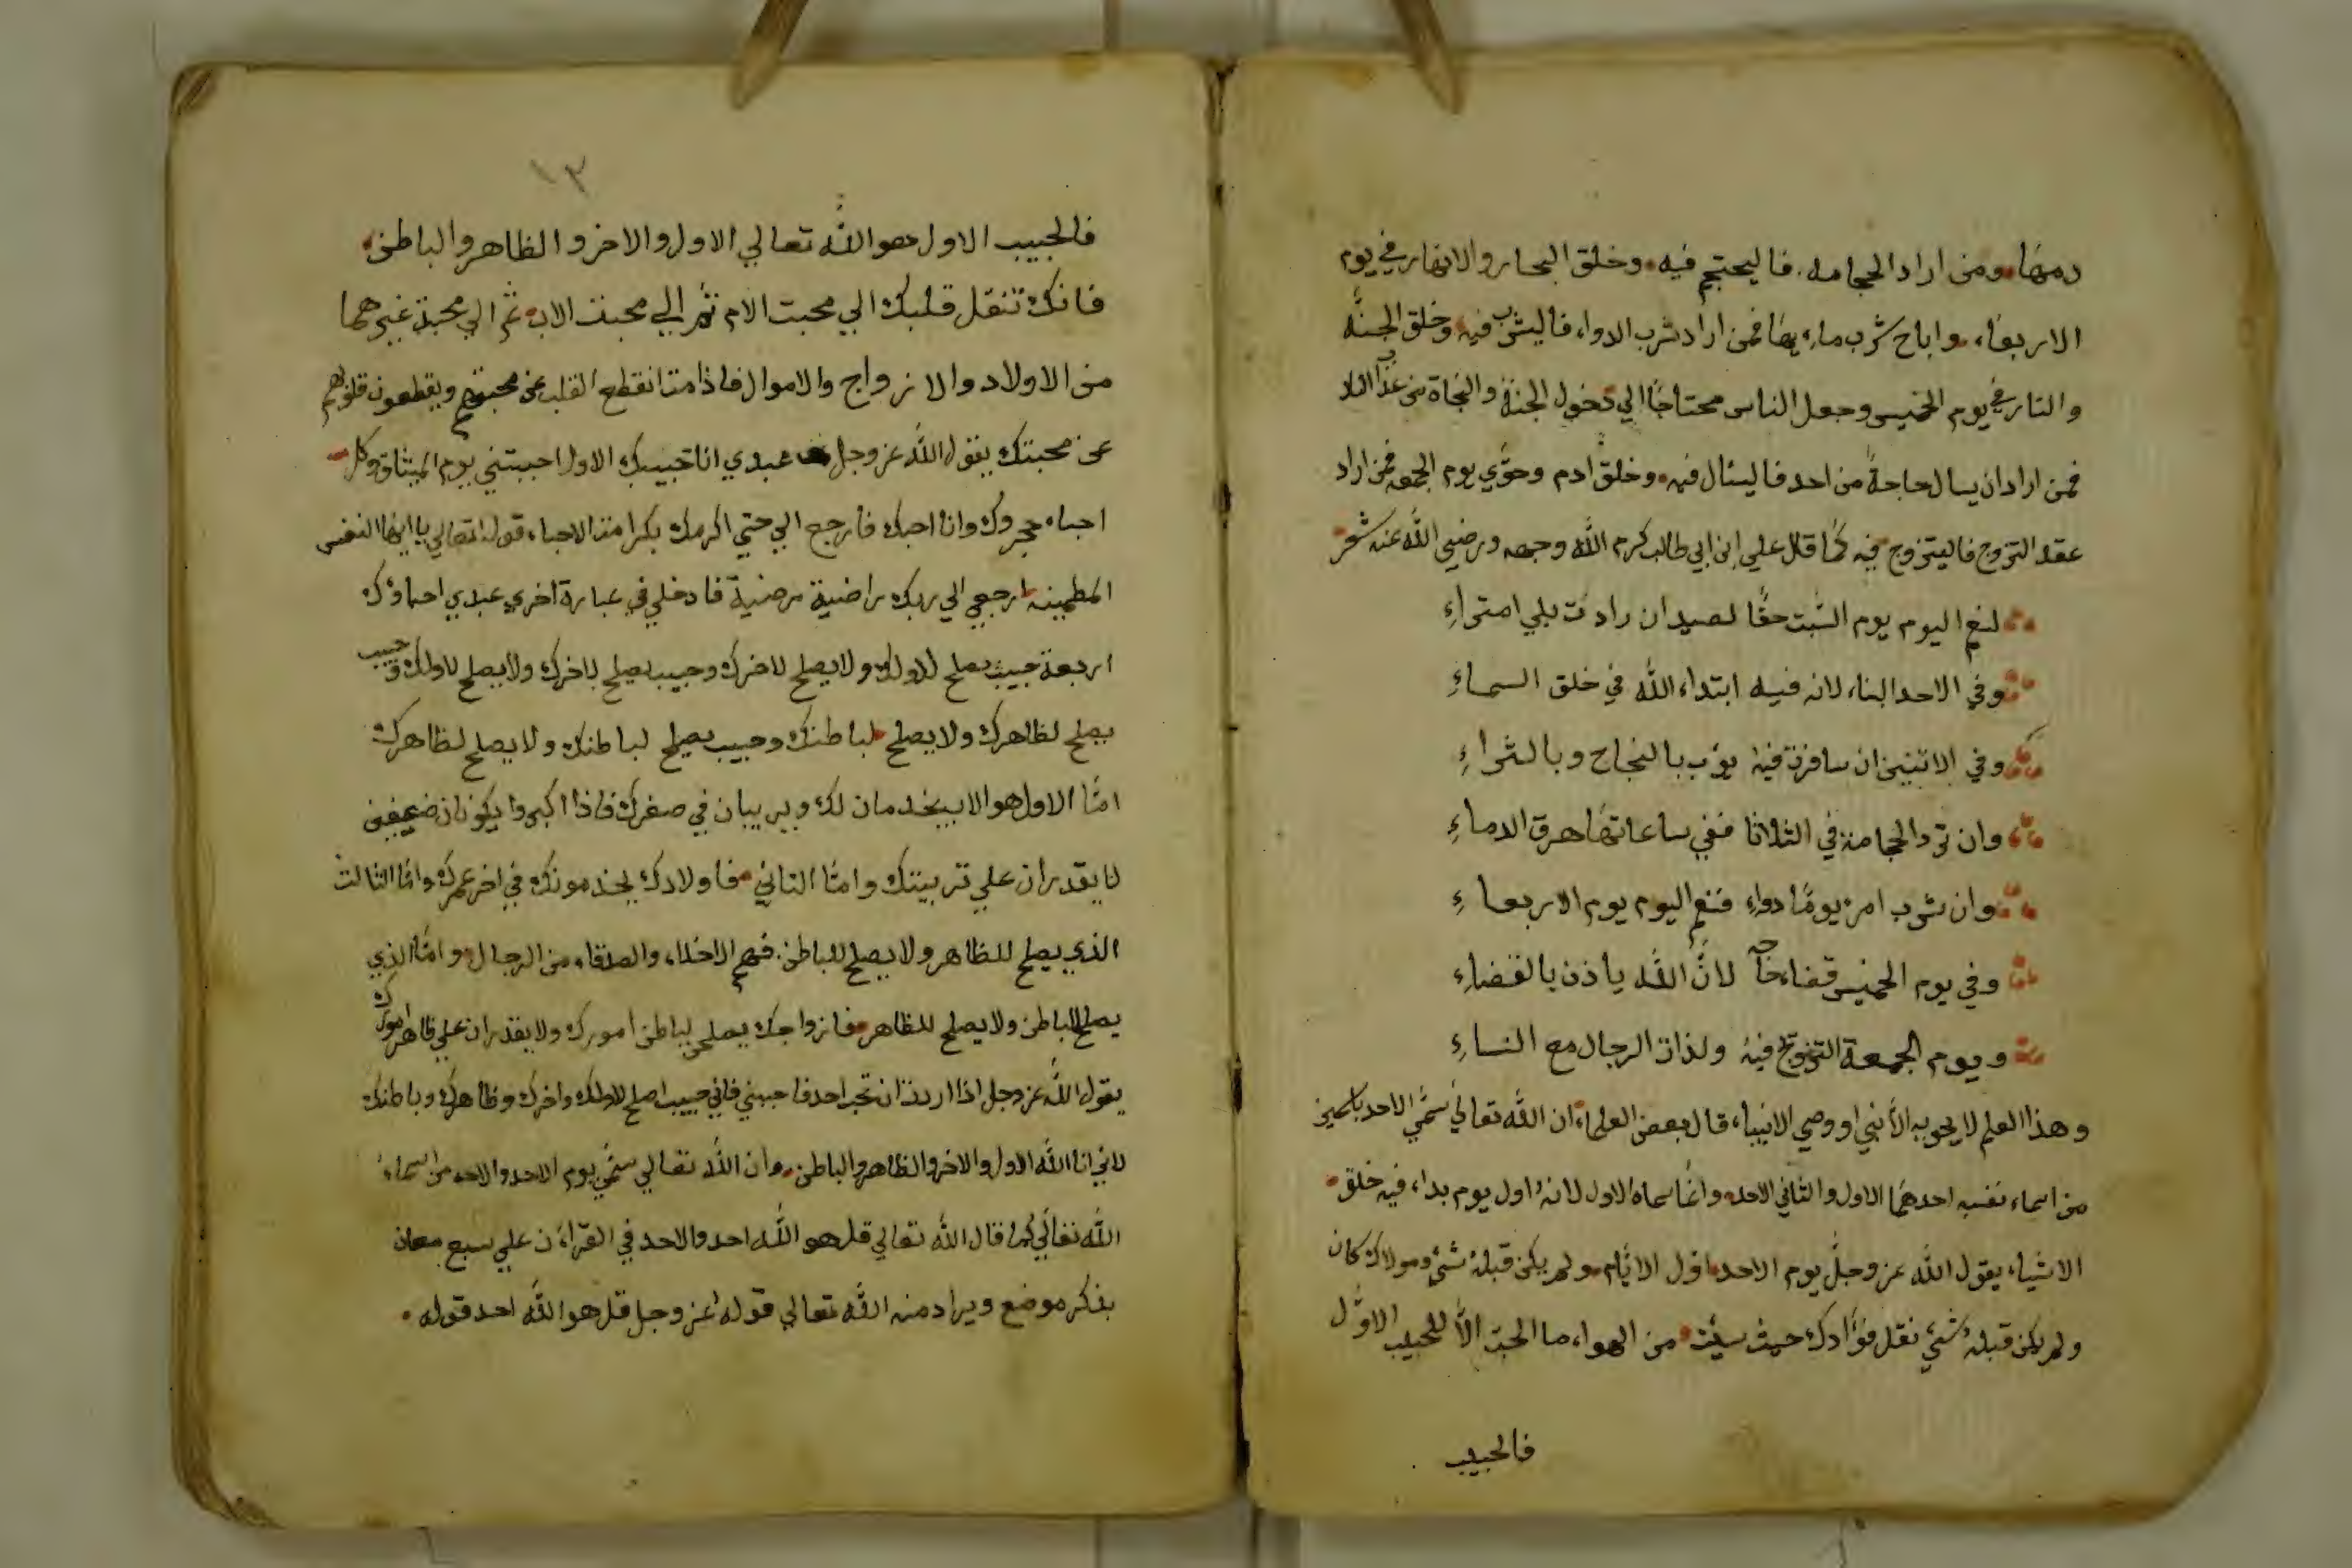 دمها ومن اراد الحجامه فاليحتجم فيه وخلق البحار والانهار في يوم
الاربعاء واباح شرب ماء بها فمن اراد شرب الدواء فاليشرب فيه وخلق الجنة
والنار في يوم الخميس وجعل الناس محتاجا الي دخول الجنة والنجاة من عذاب النار
فمن اراد ان يسال حاجة من احد فاليسئال فيه وخلق ادم وحوي يوم الجمعه فمن اراد
عقد التزوج فاليتزوج فيه كما قال علي ابن ابي طالب كرم الله وجهه ورضي الله عنه شعر
لنعم اليوم يوم السبت حقا لصيد ان رادت بلي امتراء
وفي الاحد البناء لانه فيه ابتداء الله في خلق السماء
وفي الاتنين ان سافرت فيه يؤب بالنجاح وبالشراء
وان ترد الحجامة في الثلاثا ففي ساعاتها هرق الدماء
وان شرب امرء يوما دواء فنعم اليوم يوم الاربعاء
وفي يوم الخميس قضاء حاجة لان الله ياذن بالقضاء
ويوم الجمعة التزوج فيه ولذات الرجال مع النساء
وهذا العلم لا يحويه الا نبي او وصي الانبياء قال بعض العلماء ان الله تعالي سمي الاحد باسمين
من اسماء نفسه احدهما الاول والثاني الاحد وانما سماه الاول لانه اول يوم بداء فيه خلق
الاشياء يقول الله عز وجل يوم الاحد اول الايام ولم يكن قبله شئ ومولاك كان
ولم يكن قبله شئ نقل فؤادك حيث شئت من الهواء ما الحب الا للحبيب الاول
فالحبيب
١٣
فالحبيب الاول هو الله تعالي الاول والاخر والظاهر والباطن
فانك تنقل قلبك الي محبت الام ثم الي محبت الاب ثم الي محبة غيرهما
من الاولاد والازواج والاموال فاذا مت انقطع القلب عن محبتهم ويقطعون قلوبهم
عن محبتك يقول الله عز وجل عبدي انا حبيبك الاول احببتني يوم الميثاق وكل
احباء هجروك وانا احبك فارجع الي حتي اكرمك بكرامة الاحباء قوله تعالي يا ايها النفس
المطمينه ارجعي الي ربك راضية مرضية فادخلي في عبارة اخري عبدي احباؤك
اربعة حبيب يصلح لاولك ولا يصلح لاخرك وحبيب يصلح لاخرك ولا يصلح لاولك وحبيب
يصلح لظاهرك ولا يصلح لباطنك وحبيب يصلح لباطنك ولا يصلح لظاهرك
امتا الاول هو الابيخدمان لك ويربيان في صغرك فاذا اكبروا يكونان ضعيفين
لا يقدران علي تربيتك وامتا الثاني فاولادك يخدمونك في اخر عمرك وامتا الثالث
الذي يصلح للظاهر ولا يصلح للباطن فهم الاخلاء والصدقاء من الرجال وامتا الذي
يصلح للباطن ولا يصلح للظاهر فازواجك يصلحن لباطن امورك ولا يقدران علي ظاهر امورك
يقول الله عز وجل اذا اردت ان تحب احد فاحببني فاني حبيب اصلح لاولك واخرك وظاهرك وباطنك
لاني انا الله الاول والاخر والظاهر والباطن وان الله تعالي سمي يوم الاحد والاحد من اسماء
الله تعالي كما قال الله تعالي قل هو الله احد والاحد في القراءن علي سبع معان
بذكر موضع ويراد منه الله تعالي قوله عز وجل قل هو الله احد قوله